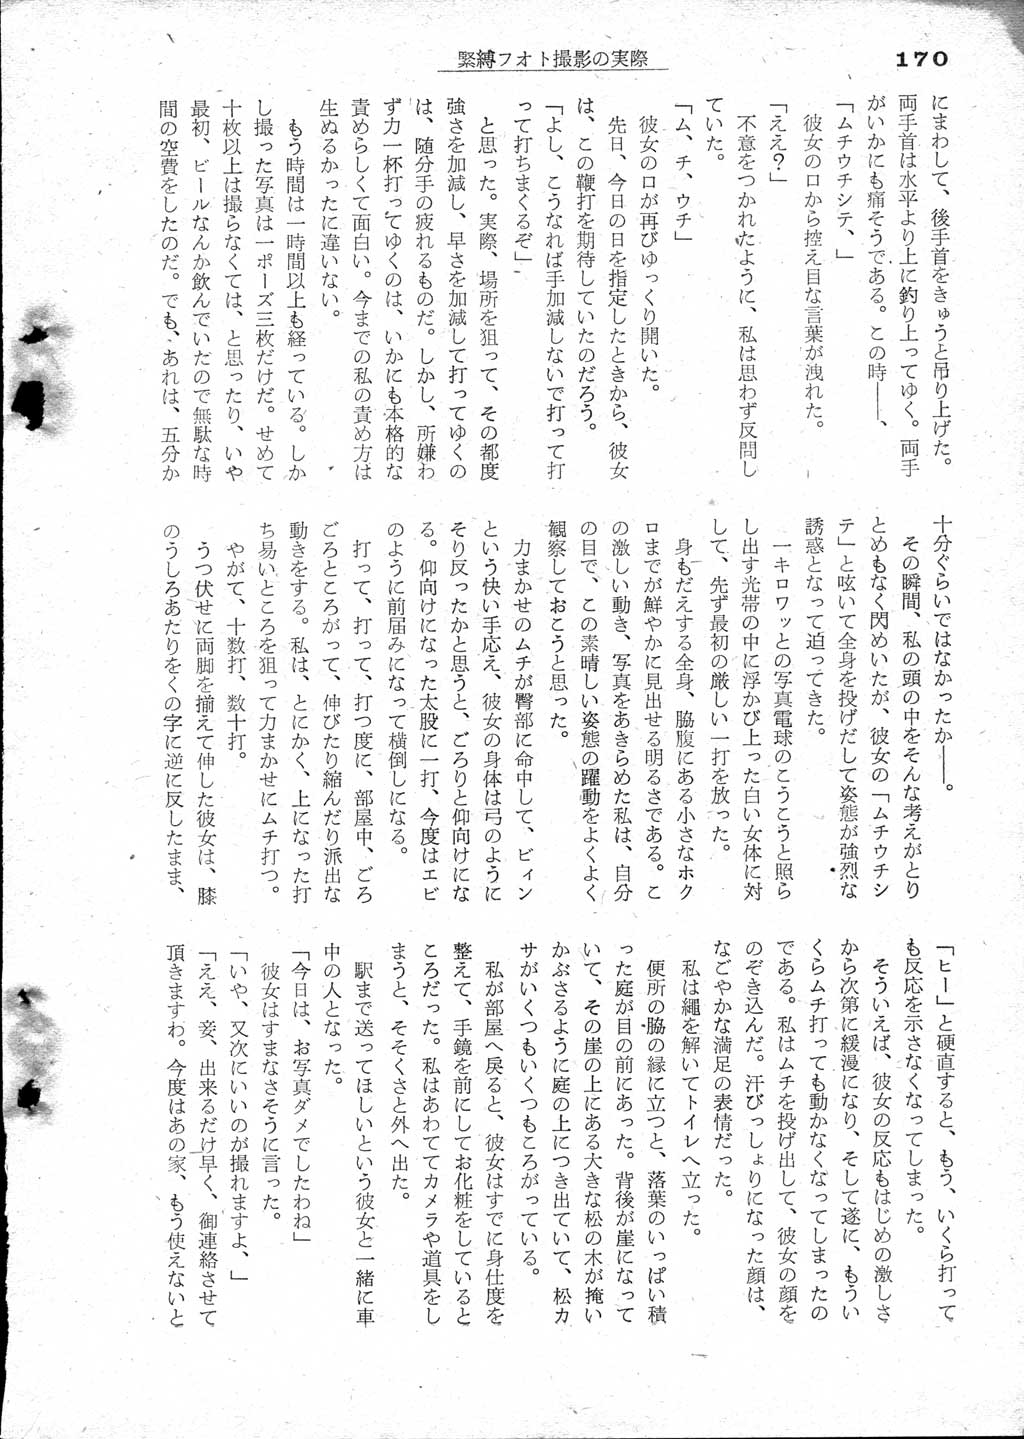 170
緊縛フオト撮影の実際
にまわして、後手首をきゅうと吊り上げた。
両手首は水平より上に釣り上ってゆく。両手
がいかにも痛そうである。この時――、
「ムチウチシテ、」
彼女の口から控え目な言葉が洩れた。
「ええ？」
不意をつかれたように、私は思わず反問し
ていた。
「ム、チ、ウチ」
彼女の口が再びゆっくり開いた。
先日、今日の日を指定したときから、彼女
は、この鞭打を期待していたのだろう。
「よし、こうなれば手加減しないで打って打
って打ちまくるぞ」
と思った。実際、場所を狙って、その都度
強さを加減し、早さを加減して打ってゆくの
は、随分手の疲れるものだ。しかし、所嫌わ
ず力一杯打ってゆくのは、いかにも本格的な
責めらしくて面白い。今までの私の責め方は
生ぬるかったに違いない。
もう時間は一時間以上も経っている。しか
し撮った写真は一ポーズ三枚だけだ。せめて
十枚以上は撮らなくては、と思ったり、いや
最初、ビールなんか飲んでいだので無駄な時
間の空費をしたのだ。でも、あれは、五分か
十分ぐらいではなかったか――。
その瞬間、私の頭の中をそんな考えがとり
とめもなく閃めいたが、彼女の「ムチウチシ
テ」と呟いて全身を投げだして姿態が強烈な
誘惑となって迫ってきた。
一キロワッとの写真電球のこうこうと照ら
し出す光帯の中に浮かび上った白い女体に対
して、先ず最初の厳しい一打を放った。
身もだえする全身、脇腹にある小さなホク
ロまでが鮮やかに見出せる明るさである。こ
の激しい動き、写真をあきらめた私は、自分
の目で、この素晴しい姿態の躍動をよくよく
観察しておこうと思った。
力まかせのムチが臀部に命中して、ビィン
という快い手応え、彼女の身体は弓のように
そり反ったかと思うと、ごろりと仰向けにな
る。仰向けになった太股に一打、今度はエビ
のように前届みになって横倒しになる。
打って、打って、打つ度に、部屋中、ごろ
ごろところがって、伸びたり縮んだり派出な
動きをする。私は、とにかく、上になった打
ち易いところを狙って力まかせにムチ打つ。
やがて、十数打、数十打。
うつ伏せに両脚を揃えて伸した彼女は、膝
のうしろあたりをくの字に逆に反したまま、
「ヒー」と硬直すると、もう、いくら打って
も反応を示さなくなってしまった。
そういえば、彼女の反応もはじめの激しさ
から次第に緩漫になり、そして遂に、もうい
くらムチ打っても動かなくなってしまったの
である。私はムチを投げ出して、彼女の顔を
のぞき込んだ。汗びっしょりになった顔は、
なごやかな満足の表情だった。
私は縄を解いてトイレへ立った。
便所の脇の縁に立つと、落葉のいっぱい積
った庭が目の前にあった。背後が崖になって
いて、その崖の上にある大きな松の木が掩い
かぶさるように庭の上につき出ていて、松カ
サがいくつもいくつもころがっている。
私が部屋へ戻ると、彼女はすでに身仕度を
整えて、手鏡を前にしてお化粧をしていると
ころだった。私はあわててカメラや道具をし
まうと、そそくさと外へ出た。
駅まで送ってほしいという彼女と一緒に車
中の人となった。
「今日は、お写真ダメでしたわね」
彼女はすまなさそうに言った。
「いや、又次にいいのが撮れますよ、」
「ええ、妾、出来るだけ早く、御連絡させて
頂きますわ。今度はあの家、もう使えないと